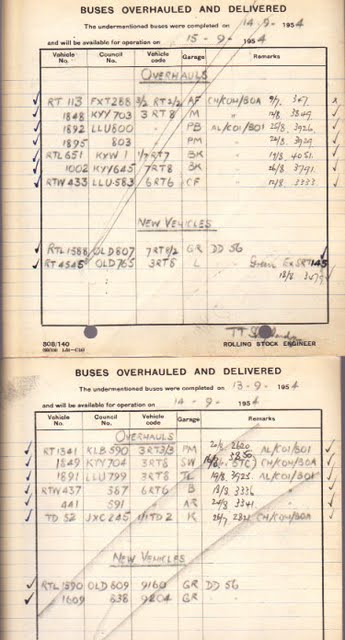 BUSES OVERHAULED AND DELIVERED
The undermentioned buses were completed on 14-9- 1954
and will be available for operation on 15-9- 1954
Vehicle No. Council No. Vehicle code Garage Remarks
OVERHAULS
RT 113 FXT288 3/2 RT2/2 AF CH/KOM/BOA 9/7.
1848 KYY703 3RT8 M " 3849
1892 LLU800 PB AL/KOI/BOI 25/8. 3926
1895 803 PM 3929
RTL651 KYW 1 1/7RT7 BK 19/8. 4051
1002 KYY645 7RT8 BK 26/8 3791
RTW433 LLU583 6RT6 CF 3333
NEW VEHICLES
RTL1588 OLD807 7RT8/2 GR DD 56
RT4545 OLD765 3RT8 L Green Ex SRT145
ROLLING STOCK ENGINEER
808/140
BUSES OVERHAULED AND DELIVERED
The undermentioned buses were completed on 13-9- 1954
and will be available for operation on 14-9- 1954
Vehicle No. Council No. Vehicle code Garage Remarks
OVERHAULS
RT1341 KLB590 3RT3/3 PM 2620 AL/KOI/BOI
1849 KYY704 3RT8 SW 3850 CH/KOM/BOA
1891 LLU799 3RT8 TL 3925 AL/KOI/BOI
RTW437 587 6RT6 B 3336 "
441 591 " AR 3341 "
TD 52 JXC245 1/1TD2 K CH/KOM/BOA
NEW VEHICLES
RTL1590 OLD609 9160 GR DD 56
1609 638 9204 GR "